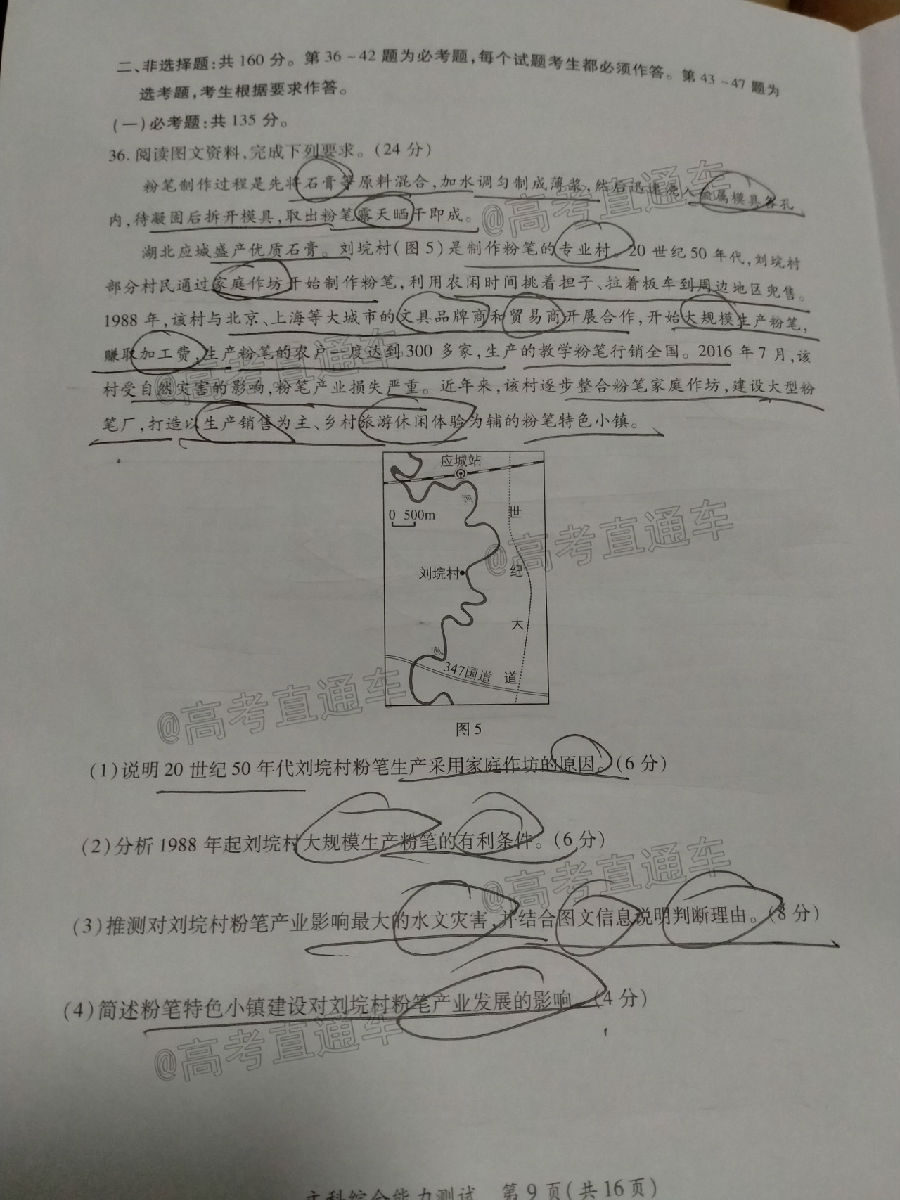 二、非选择题:共160分。第36~42题为必考题,每个试题考生都必须作答。第43~47题为
选考题,考生根据要求作答。
(一)必考题:共135分。
36.阅读图文资料,完成下列要求。(24分)
粉笔制作过程是先将石膏等原料混合,加水调匀制成薄浆,然后迅速浇入金属模具各孔
内,待凝固后拆开模具,取出粉笔露天晒干即成。
湖北应城盛产优质石膏。刘垸村(图5)是制作粉笔的专业村。20世纪50年代,刘垸村
部分村民通过家庭作坊开始制作粉笔,利用农闲时间挑着担子、拉着板车到周边地区兜售。
1988年,该村与北京、上海等大城市的文具品牌商和贸易商开展合作,开始大规模生产粉笔,
赚取加工费,生产粉笔的农户一度达到300多家,生产的教学粉笔行销全国。2016年7月,该
村受自然灾害的影响,粉笔产业损失严重。近年来,该村逐步整合粉笔家庭作坊,建设大型粉
笔厂,打造以生产销售为主、乡村旅游休闲体验为辅的粉笔特色小镇。
应城站
0 500m
河
世
刘垸村
纪
大
347国道
道
图5
(1)说明20世纪50年代刘垸村粉笔生产采用家庭作坊的原因。(6分)
(2)分析1988年起刘垸村大规模生产粉笔的有利条件。(6分)
(3)推测对刘垸村粉笔产业影响最大的水文灾害,并结合图文信息说明判断理由。(8分)
(4)简述粉笔特色小镇建设对刘垸村粉笔产业发展的影响。(4分)
文科综合能力测试 第9页(共16页)
@高考直通车
@高考直通车
@高考直通车
@高考直通车
@高考直通车
@高考直通车